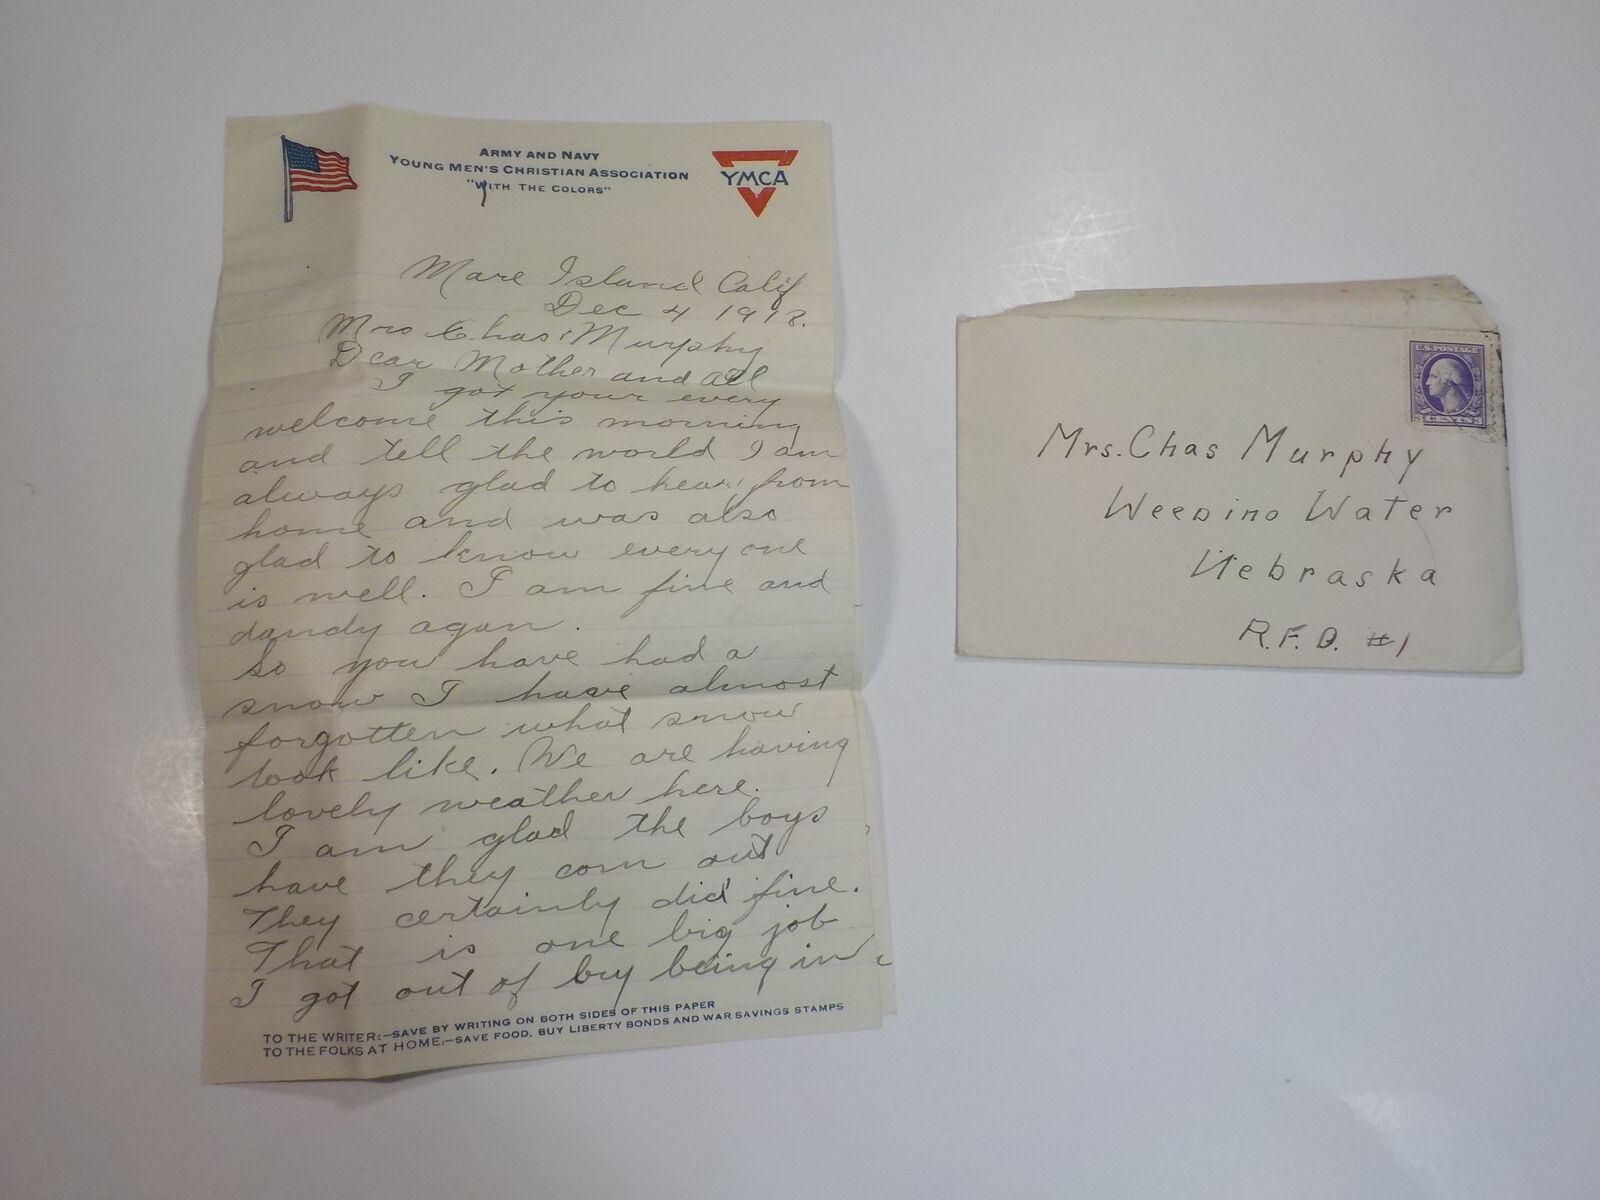 ARMY AND NAVY
YOUNG MEN'S CHRISTIAN ASSOCIATION
"WITH THE COLORS"
YMCA
Mare Island Calif
Dec 4 1918.
Mrs Chas Murphy
Dear Mother and all
I got your every
welcome this morning
and tell the world I am
always glad to hear from
home and was also
glad to know every one
is well. I am fine and
dandy agan.
So you have had a
snow I have almost
forgotten what snow
look like. We are having
lovely weather here.
I am glad the boys
have they corn out
They certainly did fine.
That is one big job
I got out of by being in
TO THE WRITER:—SAVE BY WRITING ON BOTH SIDES OF THIS PAPER
TO THE FOLKS AT HOME:—SAVE FOOD, BUY LIBERTY BONDS AND WAR SAVINGS STAMPS
U.S. POSTAGE
3 CENTS 3
Mrs. Chas Murphy
Weeping Water
Nebraska
R.F.D. #1